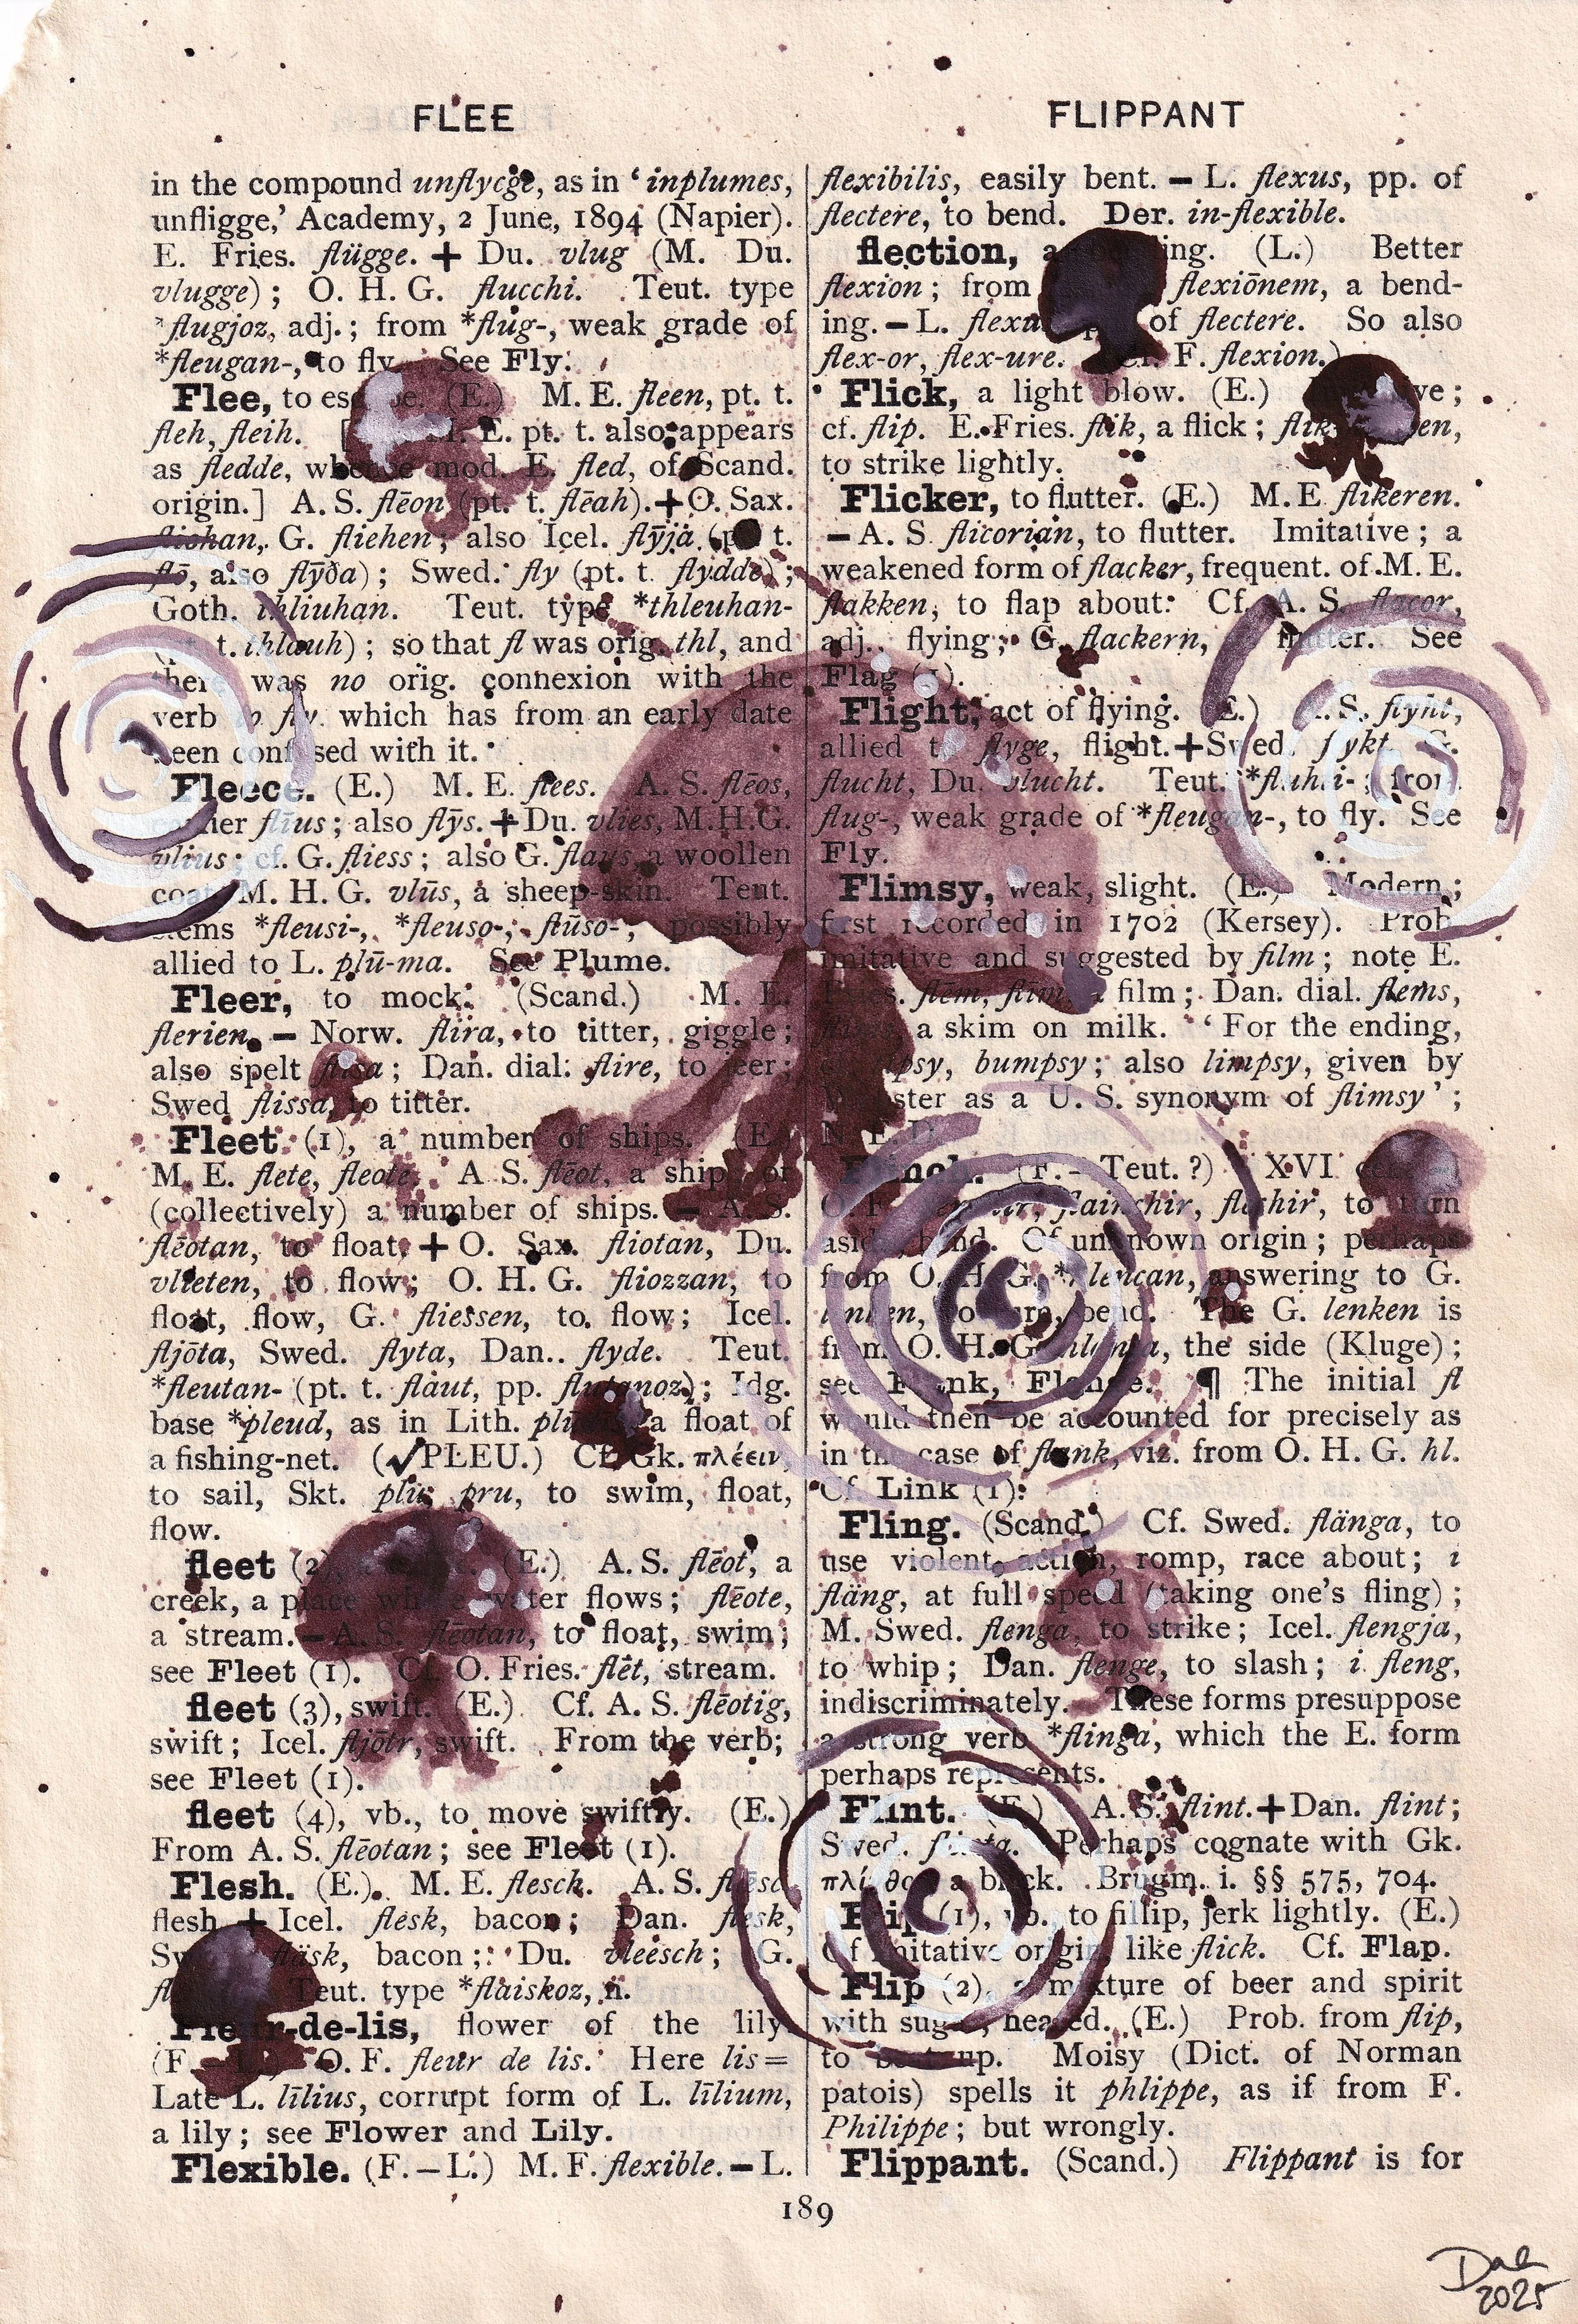 FLEE
FLIPPANT
in the compound unflycge, as in ‘inplumes,
unfligge,’ Academy, 2 June, 1894 (Napier).
E. Fries. flügge. + Du. vlug (M. Du.
vlugge); O. H. G. flucchi. Teut. type
*flugjoz, adj.; from *flug-, weak grade of
*fleugan-, to fly. See Fly.
Flee, to (E.) M. E. fleen, pt. t.
fleh, fleih. E. pt. t. also appears
as fledde, whence mod. E. fled, of Scand.
origin.] A. S. flēon (pt. t. flēah).+O. Sax.
G. fliehen; also Icel. flȳja (pt. t.
flō, also flȳða); Swed. fly (pt. t. flydde);
Goth. thliuhan. Teut. type *thleuhan-
(pt. t. thlauh); so that fl was orig. thl, and
there was no orig. connexion with the
verb to fly, which has from an early date
been confused with it.
Fleece. (E.) M. E. flees. A. S. flēos,
flīus; also flȳs.+Du. vlies, M.H.G.
vlius; cf. G. fliess; also G. flaus, a woollen
coat, M. H. G. vlūs, a sheep-skin. Teut.
stems *fleusi-, *fleuso-, flūso-; possibly
allied to L. plū-ma. See Plume.
Fleer, to mock. (Scand.) M. E.
flerien. – Norw. flira, to titter, giggle;
also spelt flisa; Dan. dial. flire, to jeer;
Swed flissa, to titter.
Fleet (1), a number of ships. (E.)
M. E. flete, fleote. A S. flēot, a ship, or
(collectively) a number of ships. – A. S.
flēotan, to float. + O. Sax. fliotan, Du.
vlieten, to flow; O. H. G. fliozzan, to
float, flow, G. fliessen, to flow; Icel.
fljōta, Swed. flyta, Dan. flyde. Teut.
*fleutan- (pt. t. flaut, pp. flutanoz); Idg.
base *pleud, as in Lith. a float of
a fishing-net. (√PLEU.) Cf. Gk. πλέειν,
to sail, Skt. plu, pru, to swim, float,
flow.
fleet (2), (E.) A. S. flēot, a
creek, a place where water flows; flēote,
a stream. – A. S. flēotan, to float, swim;
see Fleet (1). Cf. O. Fries. flēt, stream.
fleet (3), swift. (E.) Cf. A. S. flēotig,
swift; Icel. fljōtr, swift. From the verb;
see Fleet (1).
fleet (4), vb., to move swiftly. (E.)
From A. S. flēotan; see Fleet (1).
Flesh. (E.) M. E. flesch. A. S. flǣsc
flesh + Icel. flesk, bacon; Dan. flesk,
fläsk, bacon; Du. vleesch; G.
Teut. type *flaiskoz, n.
Fleur-de-lis, flower of the lily.
(F. – L.) O. F. fleur de lis. Here lis=
Late L. līlius, corrupt form of L. līlium,
a lily; see Flower and Lily.
Flexible. (F. – L.) M. F. flexible. – L.
flexibilis, easily bent. – L. flexus, pp. of
flectere, to bend. Der. in-flexible.
flection, a (L.) Better
flexion; from flexiōnem, a bend-
ing. – L. of flectere. So also
flex-or, flex-ure. F. flexion.)
Flick, a light blow. (E.)
cf. flip. E. Fries. flik, a flick;
to strike lightly.
Flicker, to flutter. (E.) M. E flikeren.
– A. S. flicorian, to flutter. Imitative; a
weakened form of flacker, frequent. of M. E.
flakken, to flap about. Cf. A. S. flacor,
adj., flying; G. flackern, flutter. See
Flag (1).
Flight, act of flying. (E.) A. S. flyht,
allied to flyge, flight.+Swed. flykt, G.
flucht, Du. vlucht. Teut. *fluhti-; from
flug-, weak grade of *fleugan-, to fly. See
Fly.
Flimsy, weak, slight. (E.) Modern;
first recorded in 1702 (Kersey). Prob.
imitative and suggested by film; note E.
Fries. flēm, flīm, a film; Dan. dial. flems,
a skim on milk. ‘For the ending,
bumpsy; also limpsy, given by
Webster as a U. S. synonym of flimsy’;
N. E. D.
Flinch. (F. – Teut. ?) XVI
flainchir, flechir, to turn
aside, bend. Of unknown origin; perhaps
from O. H. G. *hlencan, answering to G.
lenken, to turn, bend. The G. lenken is
from O. H. G. the side (Kluge);
see Flank, Flange. ¶ The initial fl
would then be accounted for precisely as
in the case of flank, viz. from O. H. G. hl.
Cf. Link (1).
Fling. (Scand.) Cf. Swed. flänga, to
use violent action, romp, race about; i
fläng, at full speed (taking one’s fling);
M. Swed. flenga, to strike; Icel. flengja,
to whip; Dan. flenge, to slash; i fleng,
indiscriminately. These forms presuppose
a strong verb *flinga, which the E. form
perhaps represents.
Flint. (E.) A. S. flint.+Dan. flint;
Swed. flinta. Perhaps cognate with Gk.
πλίνθος, a brick. Brugm. i. §§ 575, 704.
Flip (1), vb. to fillip, jerk lightly. (E.)
Of imitative origin, like flick. Cf. Flap.
Flip (2), a mixture of beer and spirit
with sugar, heated. (E.) Prob. from flip,
to beat up. Moisy (Dict. of Norman
patois) spells it phlippe, as if from F.
Philippe; but wrongly.
Flippant. (Scand.) Flippant is for
189
2025